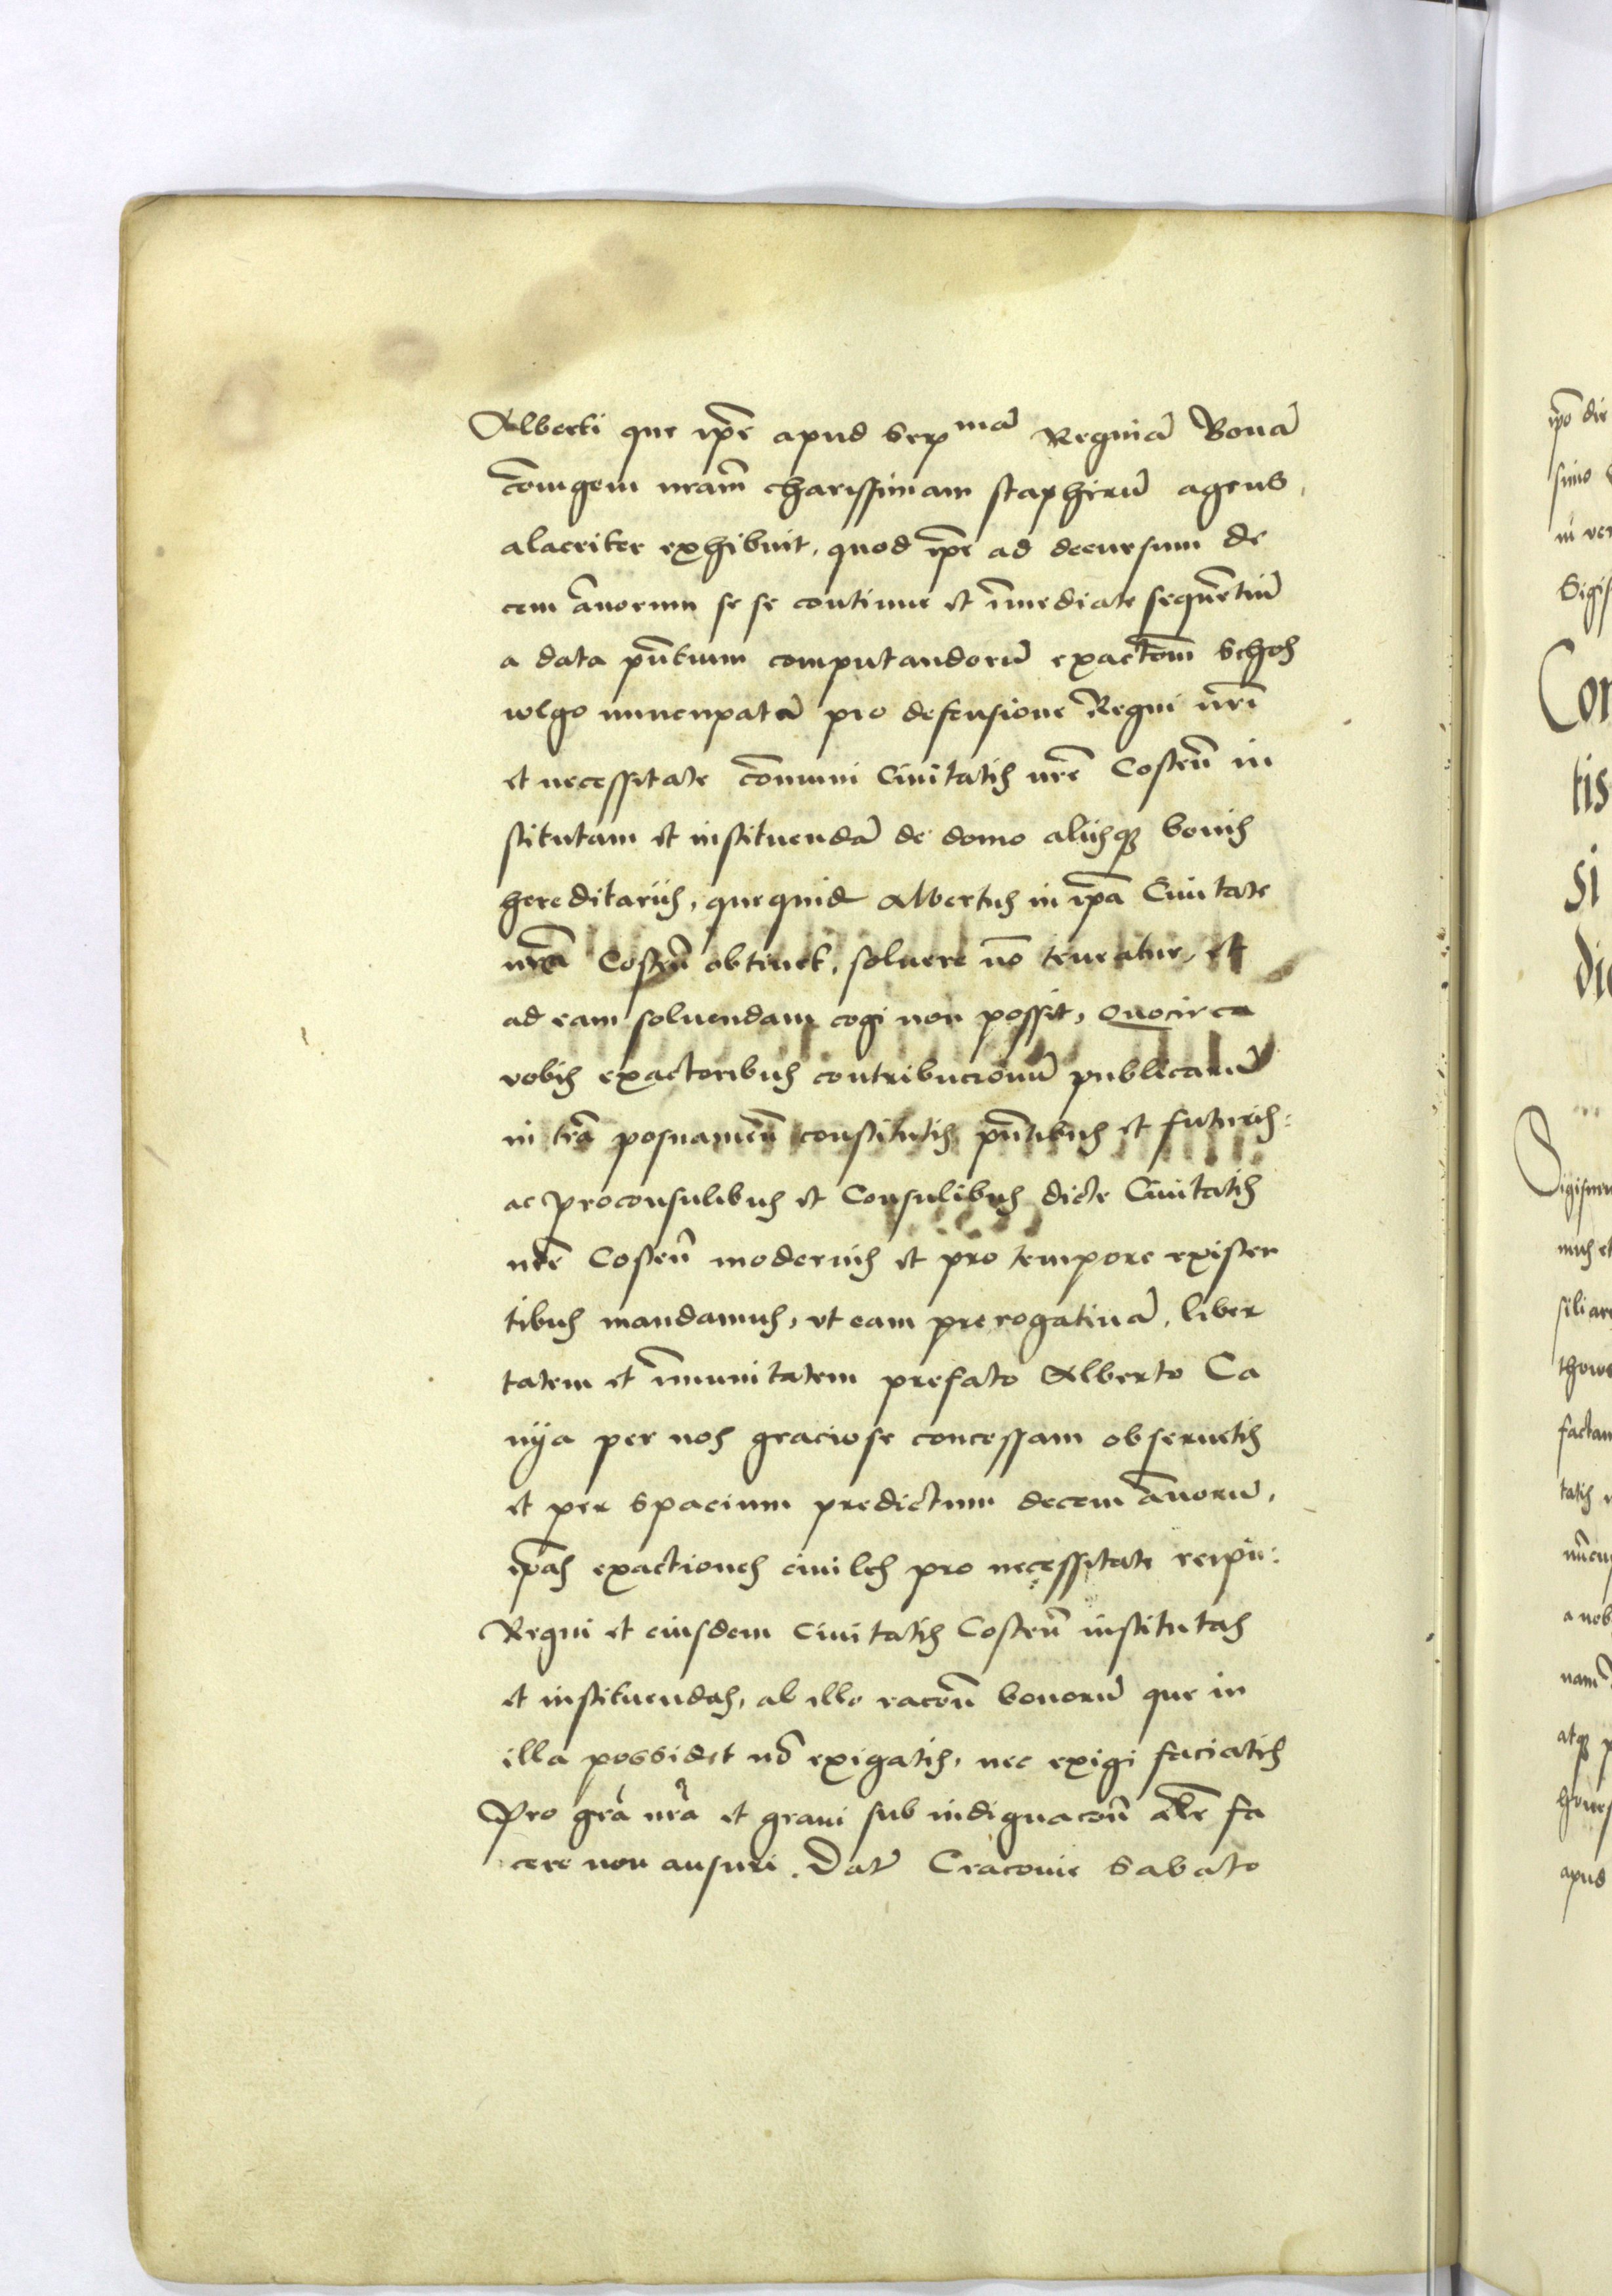 Alberti que ip̃e apud Serᵐᵃ̃ Reginā Bonā
cõiugem nr̃am charissimam staphirū agens,
alacriter exhibuit, quod ip̃e ad decursum de
cem añorum se se continue et im̃ediate sequẽtiū
a data pñtium computandorū exactõm Schos
wlgo nuncupatā pro defensione Regni nr̃i
et necessitate cõmuni Ciuitatis nr̃e Costeñ in
stitutam et instituendā de domo aliisqꝫ bonis
hereditariis, que quid Albertus in ip̃a Ciuitate
nr̃a Costeñ obtinet, soluere nō teneatur, et
ad eam soluendam cogi non possit, Quocirca
vobis exactoribus contribucionū publicarū
in tr̃a posnanieñ constitutis pñtibus et futuris:
ac proconsulibus et Consulibus dicte Ciuitatis
nr̃e Costeñ modernis et pro tempore existen
tibus mandamus, vt eam prerogatiuā, liber
tatem et im̃unitatem prefato Alberto Ca
nya per nos graciose concessam obseruetis
et per spacium predictum decem añorū,
ip̃as exactiones ciuiles pro necessitate reipu:
Regni et eiusdem Ciuitatis Costeñ institutas
et instituendas, ab illo racoñ bonorū que in
illa possidet nō exigatis, nec exigi faciatis
Pro gr̃a nr̃a et graui sub indignacoñ alr̃ fa
cere non ausuri. Dat̃ Cracovie Sabato
ip̃o die
simo
in ver
Sigis
Con
tis
si
dic
Sigismu
nus et
siliar
thowo
factam
tatis
nuncu
a nob
nam
atqꝫ p
hones
apud